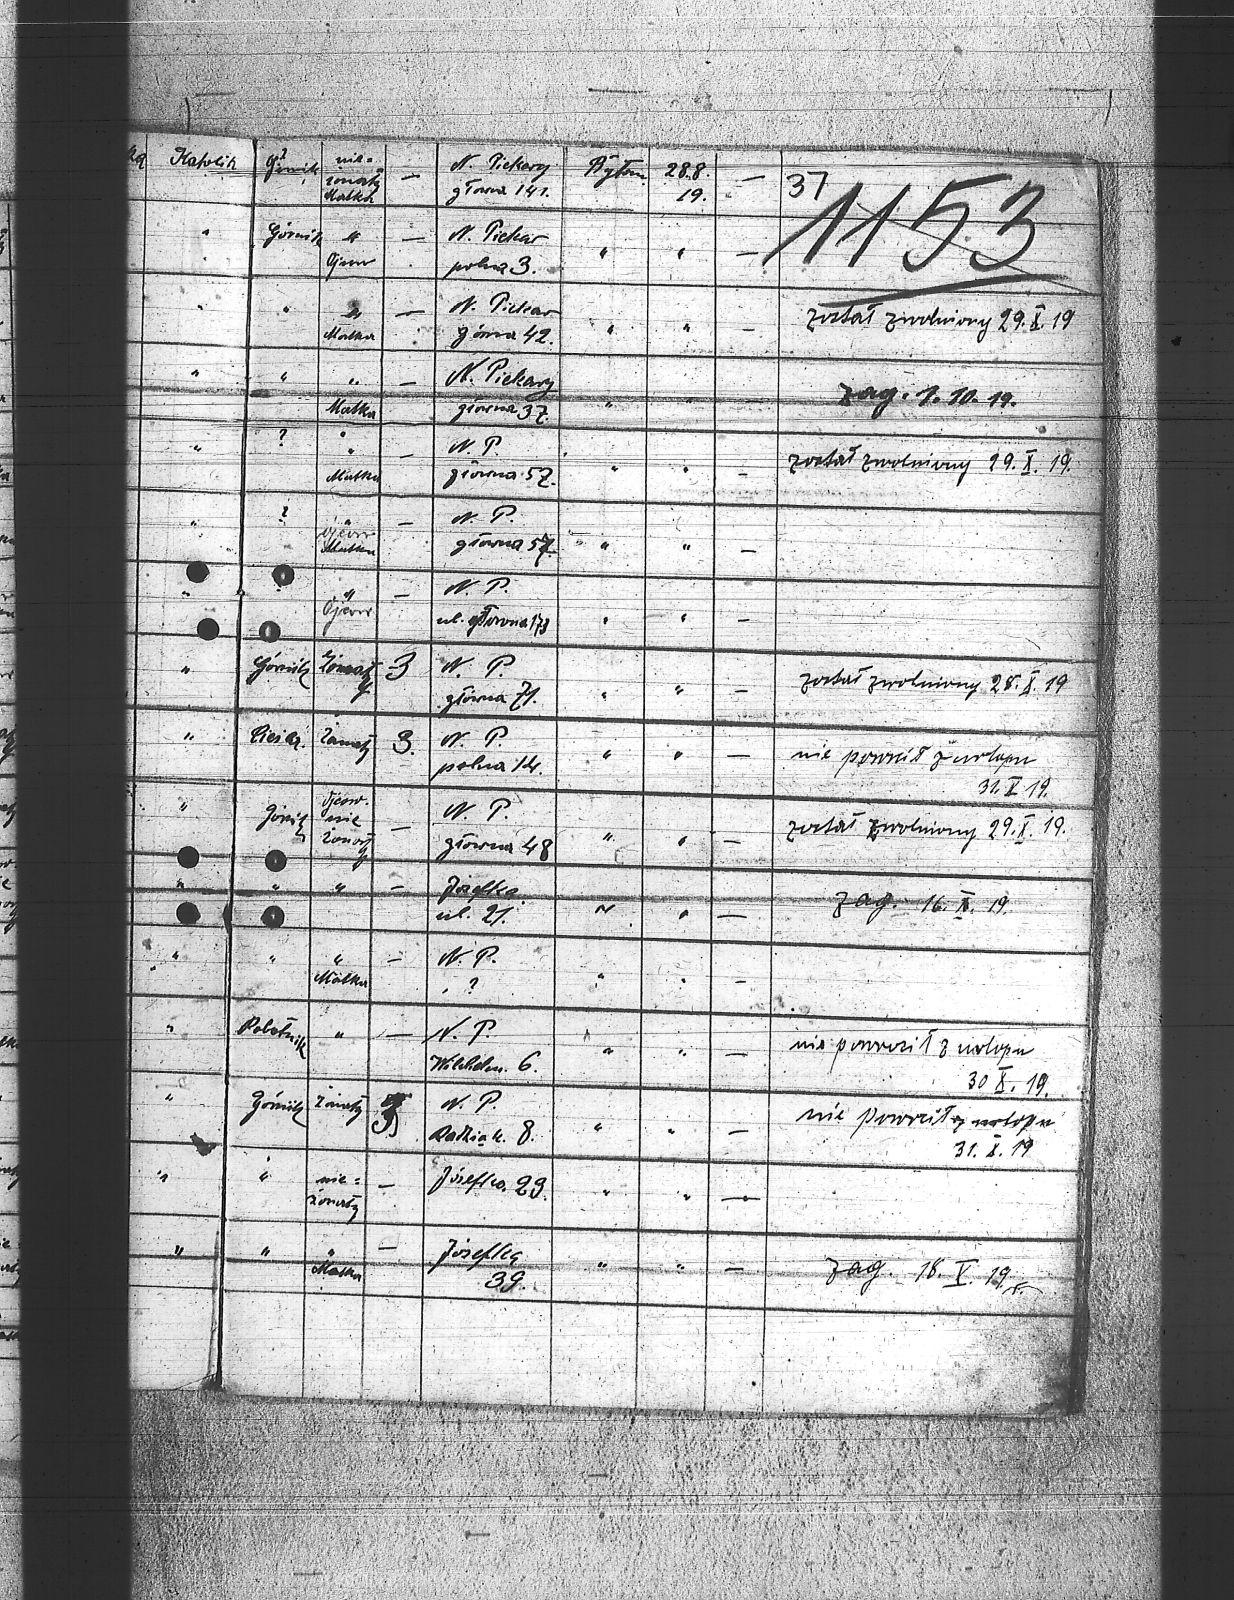 Katolik Górnik nie= N. Piekary Bytom 28.8. — 37
żonaty — główna 141. 19.
Matka
1153
" Górnik " — N. Piekar
Ojciec polna 3. " " —
" " " — N. Piekar został zwolniony 29.X.19
Matka Górna 42. " " —
" " " — N. Piekary zag. 1.10.19.
Matka główna 37. " " —
" ? " — N. P. został zwolniony 29.X.19.
Matka główna 57. " " —
" ? " — N. P.
Ojciec
Matka główna 57. " " —
" " — N. P.
Ojciec ul. główna 173 " " —
" Górnik Żonaty 3 N. P. został zwolniony 28.X.19
główna 71. " " —
" Cieśla. Żonaty 3. N. P. nie powrócił z urlopu
polna 14. " " — 31.X.19.
" Górnik Ojciec N. P.
nie — został zwolniony 29.X.19.
żonaty główna 48 " " —
" " " — Józefka zag. 16.X.19.
ul. 21. " " —
" " " — N. P.
Matka ? " " —
" Robotnik " — N. P. nie powrócił z urlopu
Wilhelm. 6. " " — 30 X.19.
" Górnik Żonaty 3 N. P. nie powrócił z urlopu
8. " " — 31.X.19
" " nie= — Józefka 29. " " —
żonaty
" " " — Józefka zag. 18.X.19.
Matka 39. " " —